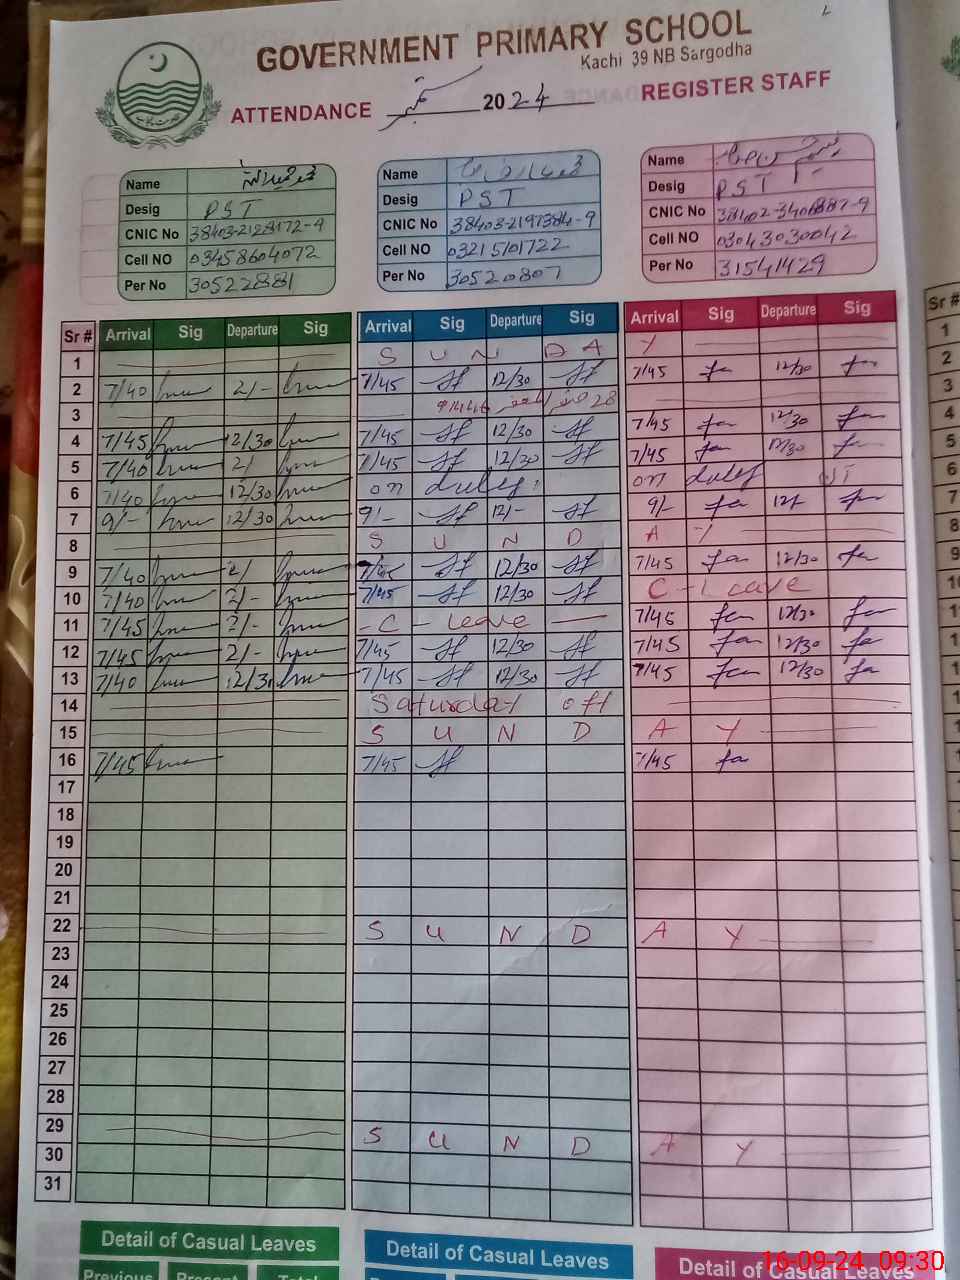 GOVERNMENT PRIMARY SCHOOL
Kachi 39 NB Sargodha
ATTENDANCE ستمبر 2024 REGISTER STAFF
Name
Desig PST
CNIC No 38403-2128172-9
Cell NO 03458604072
Per No 30522881
Name
Desig PST
CNIC No 38403-2197384-9
Cell NO 03215101722
Per No 30520807
Name
Desig PST
CNIC No
Cell NO 03043030042
Per No 31541429
Sr # Arrival Sig Departure Sig Arrival Sig Departure Sig Arrival Sig Departure Sig
1 S U N D A Y
2 7/40 2/- 7/45 12/30 7/45 12/30
3 28 صفر
4 7/45 12/30 7/45 12/30 7/45 12/30
5 7/40 2/ 7/45 12/30 7/45 12/30
6 7/40 12/30 on duty on duty
7 9/- 12/30 9/- 12/- 9/- 12/-
8 S U N D A Y
9 7/40 2/ 7/45 12/30 7/45 12/30
10 7/40 2/- 7/45 12/30 C-Leave
11 7/45 2/- -C-Leave 7/45 12/30
12 7/45 2/- 7/45 12/30 7/45 12/30
13 7/40 12/30 7/45 12/30 7/45 12/30
14 Saturday off
15 S U N D A Y
16 7/45 7/45 7/45
17
18
19
20
21
22 S U N D A Y
23
24
25
26
27
28
29 S U N D A Y
30
31
Detail of Casual Leaves Detail of Casual Leaves Detail of Casual Leaves
Previous Present Total
16-09-24 09:30